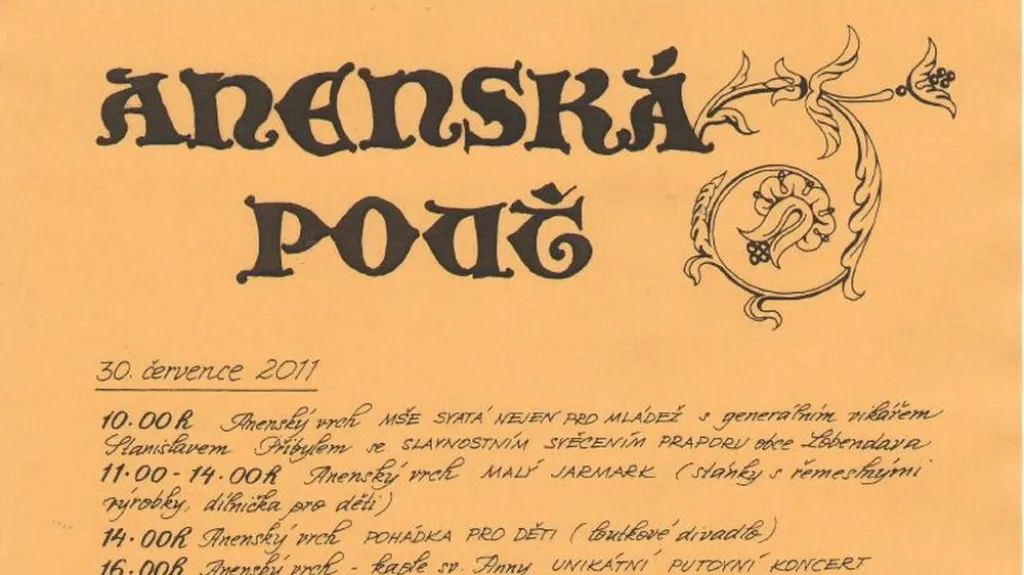 ANENSKÁ
POUŤ
30. července 2011
10.00h Anenský vrch MŠE SVATÁ NEJEN PRO MLÁDEŽ s generálním vikářem
Stanislavem Přibylem se SLAVNOSTNÍM SVĚCENÍM PRAPORU obce Lobendava
11.00 - 14.00h Anenský vrch MALÝ JARMARK (stánky s řemeslnými
výrobky, dílnička pro děti)
14.00h Anenský vrch POHÁDKA PRO DĚTI (loutkové divadlo)
16.00h Anenský vrch - kaple sv. Anny UNIKÁTNÍ PUTOVNÍ KONCERT